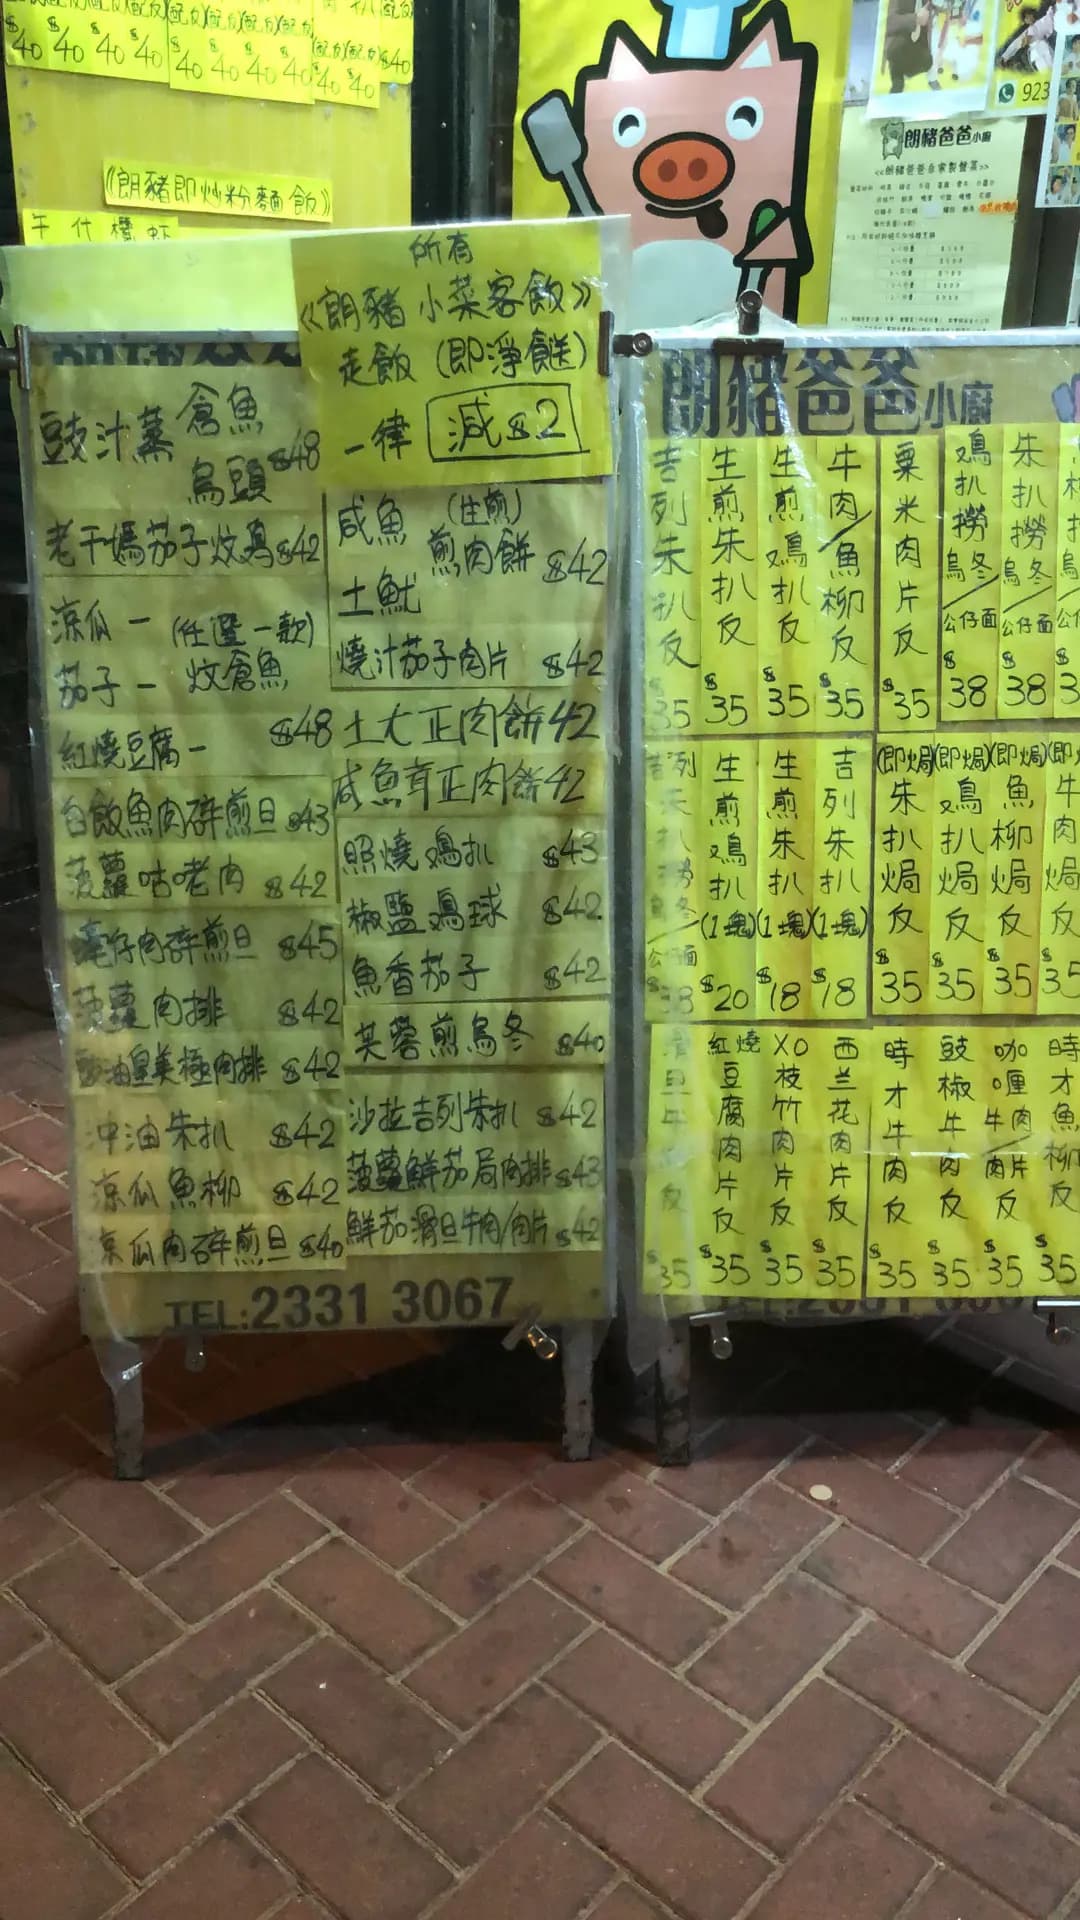 $40 $40 $40 $40 $40 $40 $40 $40 $40 $40 $40
《朗豬即炒粉麵飯》
923
朗豬爸爸小廚
<<朗豬爸爸自家製盤菜>>
所有
《朗豬小菜客飯》
走飯(即淨餸)
一律 減$2
豉汁蒸 倉魚
烏頭 $48
老干媽茄子炆鸡 $42
涼瓜 - (任選一款)
茄子 - 炆倉魚
紅燒豆腐 - $48
白飯魚肉碎煎旦 $43
菠蘿咕咾肉 $42
蠔仔肉碎煎旦 $45
菠蘿肉排 $42
豉油皇美極肉排 $42
沖油朱扒 $42
涼瓜魚柳 $42
涼瓜肉碎煎旦 $40
咸魚 (生煎)
土魷 煎肉餅 $42
燒汁茄子肉片 $42
土尤正肉餅 42
咸魚茸正肉餅 42
照燒鸡扒 $43
椒鹽鸡球 $42
魚香茄子 $42
芙蓉煎烏冬 $40
沙拉吉列朱扒 $42
菠蘿鮮茄局肉排 $43
鮮茄滑旦牛肉/肉片 $42
TEL:2331 3067
朗豬爸爸小廚
吉列朱扒反 $35
生煎朱扒反 $35
生煎鸡扒反 $35
牛肉/魚柳反 $35
粟米肉片反 $35
鸡扒撈烏冬/公仔面 $38
朱扒撈烏冬/公仔面 $38
吉列朱扒撈烏冬/公仔面 $38
生煎鸡扒(1塊) $20
生煎朱扒(1塊) $18
吉列朱扒(1塊) $18
(即焗)朱扒焗反 $35
(即焗)鸡扒焗反 $35
(即焗)魚柳焗反 $35
牛肉焗反 $35
滑旦牛肉反 $35
紅燒豆腐肉片反 $35
XO枝竹肉片反 $35
西兰花肉片反 $35
時才牛肉反 $35
豉椒牛肉反 $35
咖喱牛肉/肉片反 $35
時才魚柳反 $35